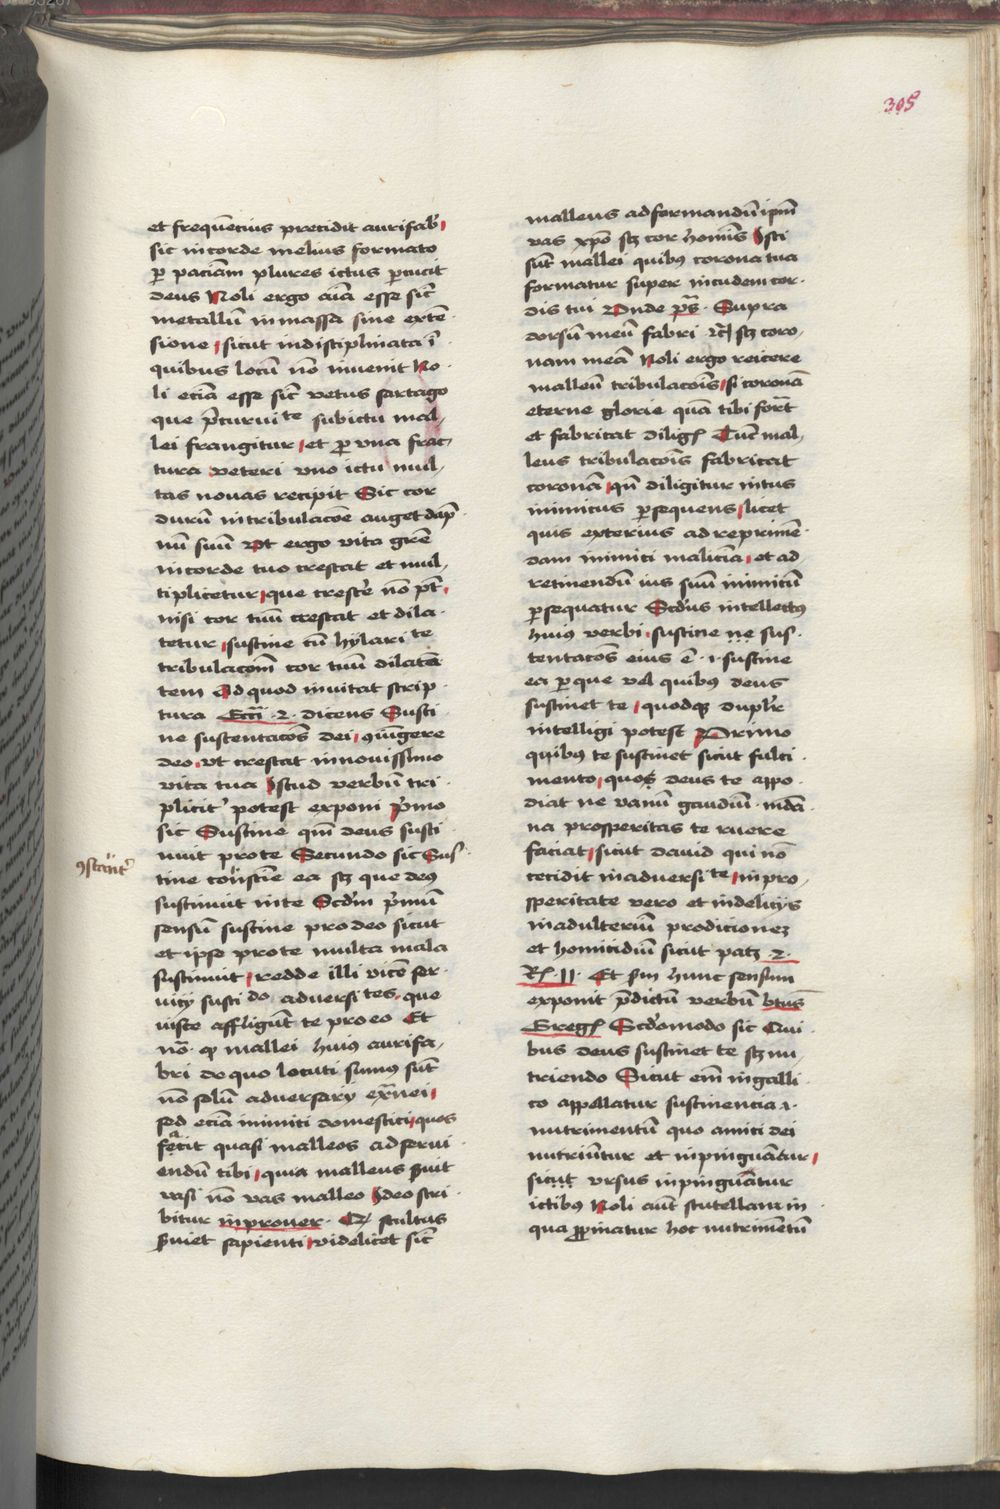 305
et frequēcius precidit aurifab̛
sic in corde melius formato
ꝑ paciam plures ictus ꝑcucit
deus Noli ergo aīa esse sic̄
metallū in massa sine exte͞
sione sicut indisciplinata ī
quibus locū nō invenit No
li eciā esse sic̄ vetus sartago
que p̄curvi te sub ictu mal
lei frangitur et ꝑ vna frac
tura veteri vno ictu mul
tas novas recipit Sic cor
durū in tribulacōe auget dāp
nū suū Vt ergo vita grē
in corde tuo crescat et mul
tiplicetur que crescē nō pt̄
nisi cor tuū crescat et dila
tetur sustine cū hylari te
tribulacōm cor tuū dilatā
tem Ad quod invitat scrip
tura Ecci · 2 · dicens Susti
ne sustentacōs dei ꝯiūgere
deo vt crescat in novissimo
vita tua Istud verbū tri
plicit̛ potest exponi p̛mo
sic Sustine qm̄ deus susti
nuit pro te Secundo sic Sus
ꝯstant̛
tine ea sꝫ que deꝰ
sustinuit in te Scdm p̛mū
sensū sustine pro deo sicut
et ipse pro te multa mala
sustinuit redde illi vicē ser
vicij susti do adversi tes que
iuste affligūt te pro eo Et
nō · ꝙ mallei huiꝰ aurifa
bri de quo locuti sumꝰ sūt
nō solū adversarij ext̄nei
sed eciā inimici domestici quos
fecit quasi malleos ad servi
endū tibi quia malleus s̛uit
vasi nō vas malleo Ideo scri
bitur in prover · Q stultus
s̛uiet sapienti videlicet sic̄
malleus ad formandū ipm̄
vas xpō sꝫ cor hōmīs Isti
sūt mallei quibꝰ corona tua
formatur super incudem cor
dis tui Vnde p̄s · Supra
dorsū meū fabri sꝫ coro
nam meā Noli ergo reicere
malleū tribulacōis si coronā
eterne glorie quā tibi format
et fabricat diligis Tūc mal
leus tribulacōis fabricat
coronā qn̄ diligitur intus
inimicus ꝑsequens licet
quis exterius ad reprimē
dam inimici maliciā et ad
retinendū ius suū inimicū
ꝑsequatur Scd̛us intellectꝰ
huiꝰ verbi sustine ne sus
tentacōs eius ē · i · sustine
ea ꝑ que vel quibꝰ deus
sustinet te quodqꝫ duplr̄
intelligi potest Primo
quibꝰ te sustinet sicut fulci
mento quos deus te appo
diat ne vanū gaudiū munda
na prosperitas te ruere
faciat sicut david qui nō
cecidit in adversi te in pro
speritate vero et in delicijs
in adulteriū prodicionez
et homicidiū sicut patz · 2 ·
R · 11 · Et sm hunc sensum
exponit p̄dictū verbū btūs
Greg Scd̛o modo sic Qui
bus deus sustinet te sꝫ nu
triendo Sicut em̄ in galli
co appellatur sustinencia · i ·
nutrimentū quo amici dei
nutriūtur et inpinguātur
sicut vrsus inpinguātur
ictibꝰ Noli aūt scutellam in
qua ꝓpinatur hoc nutrimētū